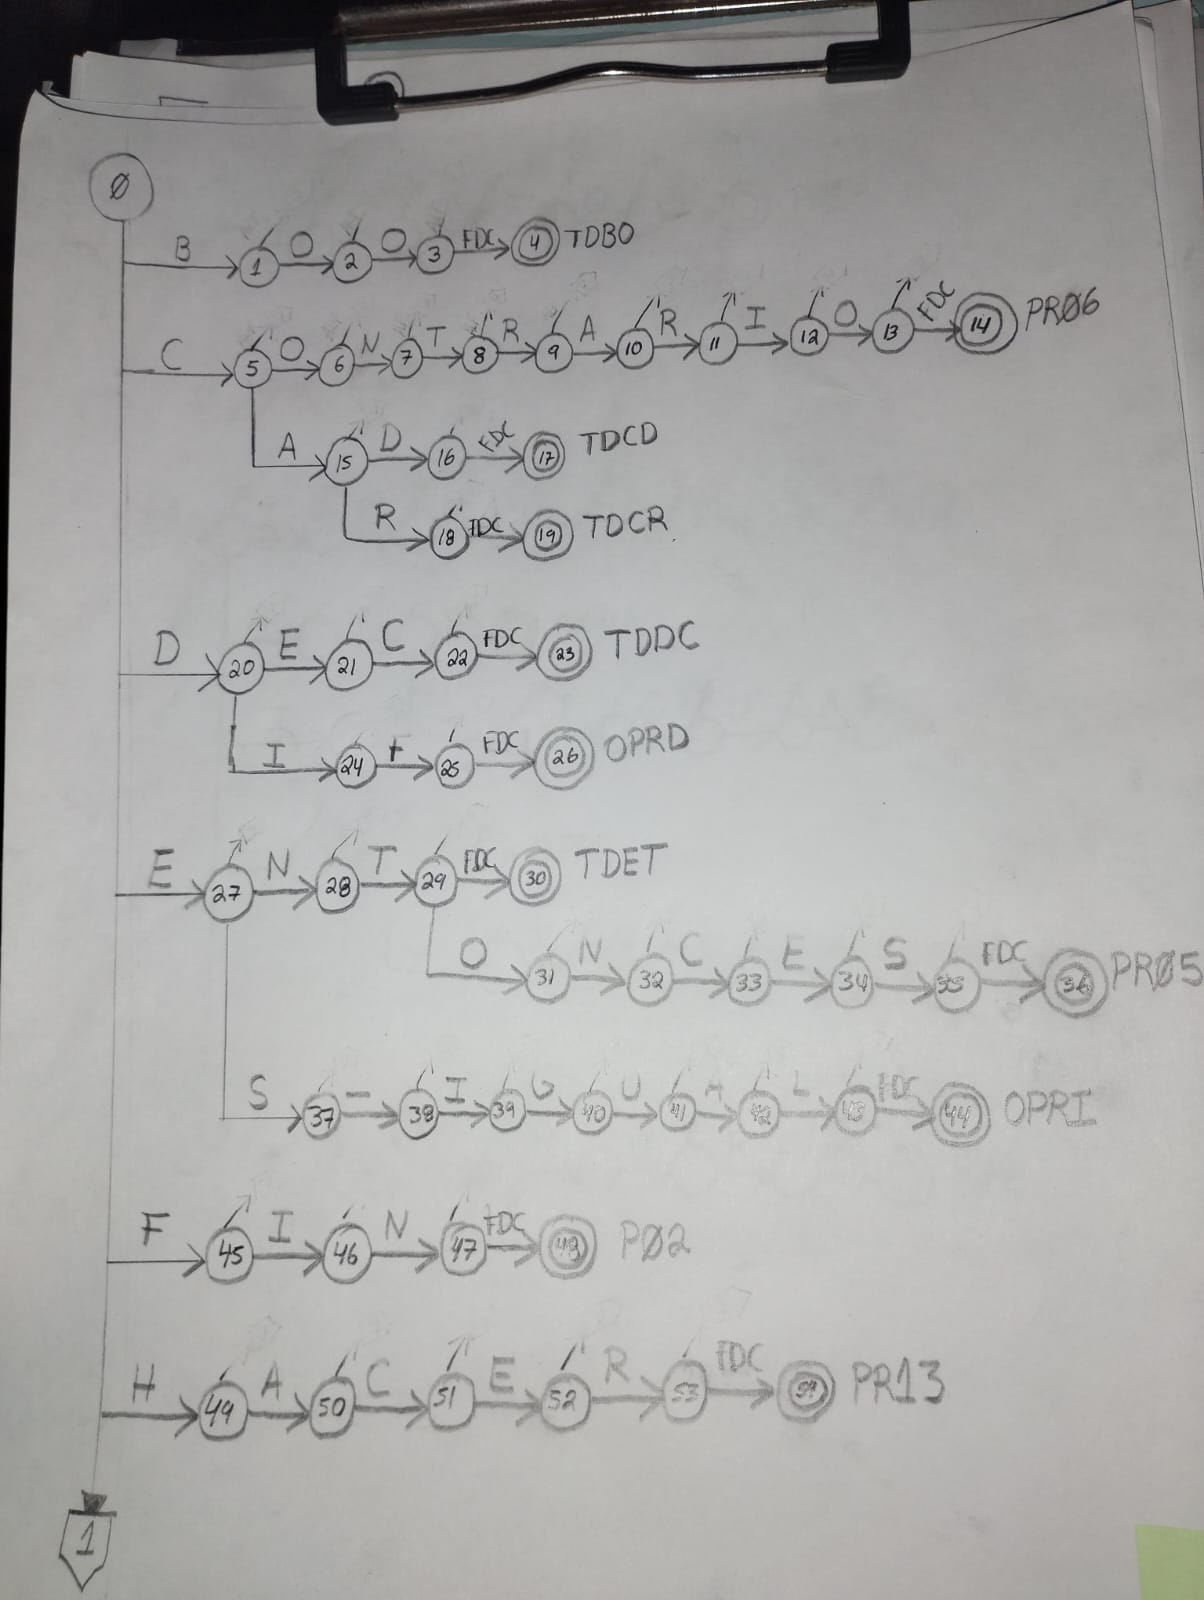 Ø
B 1 O 2 O 3 FDC 4 TDBO
C 5 O 6 N 7 T 8 R 9 A 10 R 11 I 12 O 13 FDC 14 PRØ6
A 15 D 16 FDC 17 TDCD
R 18 FDC 19 TDCR
D 20 E 21 C 22 FDC 23 TDDC
I 24 25 FDC 26 OPRD
E 27 N 28 T 29 FDC 30 TDET
O 31 N 32 C 33 E 34 S 35 FDC 36 PRØ5
S 37 - 38 I 39 G 40 U 41 A 42 L 43 FDC 44 OPRI
F 45 I 46 N 47 FDC 48 PØ2
H 49 A 50 C 51 E 52 R 53 FDC 54 PR13
1